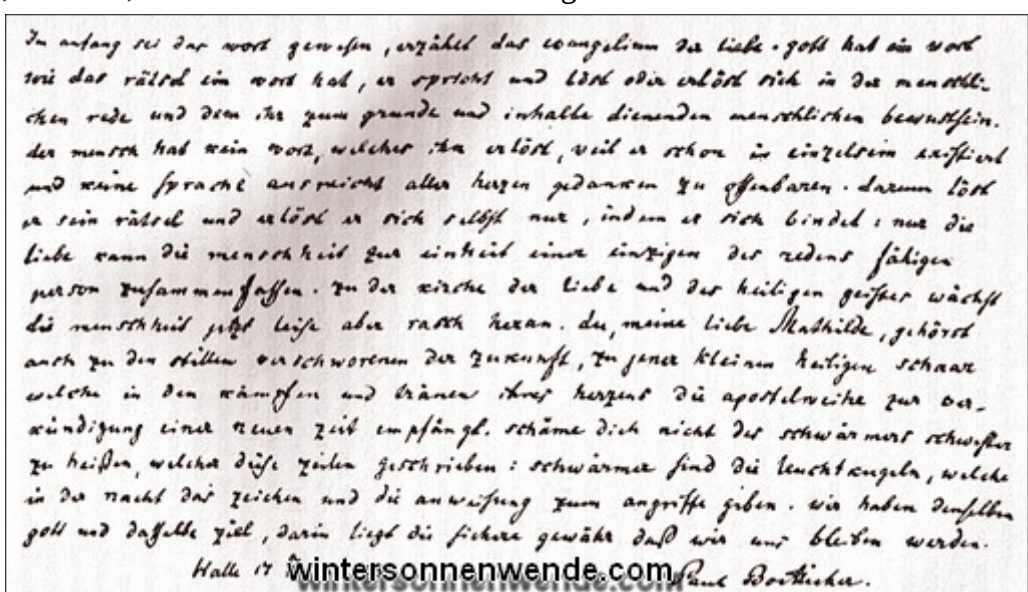 Im anfang sei das wort gewesen, erzählt das evangelium der liebe. gott hat ein wort
wie das rätsel ein wort hat, er spricht und löst oder erlöst sich in der menschli-
chen rede und dem ihr zum grunde und inhalte dienenden menschlichen bewustsein.
der mensch hat kein wort, welches ihn erlöst, weil er schon in einzelsein existiert
und keine sprache ausreicht aller herzen gedanken zu offenbaren. darum löst
er sein rätsel und erlöst er sich selbst nur, indem er sich bindet: nur die
liebe kann die menschheit zur einheit einer einzigen des redens fähigen
person zusammenfassen. zu der kirche der liebe und des heiligen geistes wächst
die menschheit jetzt leise aber rasch heran. du, meine liebe Mathilde, gehörst
auch zu den stillen verschworenen der zukunft, zu jener kleinen heiligen schaar
welche in den kämpfen und tränen ihres herzens die apostelweihe zur ver-
kündigung einer neuen zeit empfängt. schäme dich nicht des schwärmers schwester
zu heißen, welcher diese zeilen geschrieben: schwärmer sind die leuchtkugeln, welche
in der nacht das zeichen und die anweisung zum angriffe geben. wir haben denselben
gott und dasselbe ziel, darin liegt die sichere gewähr daß wir uns bleiben werden.
Halle 17 wintersonnenwende.com Paul Boetticher.